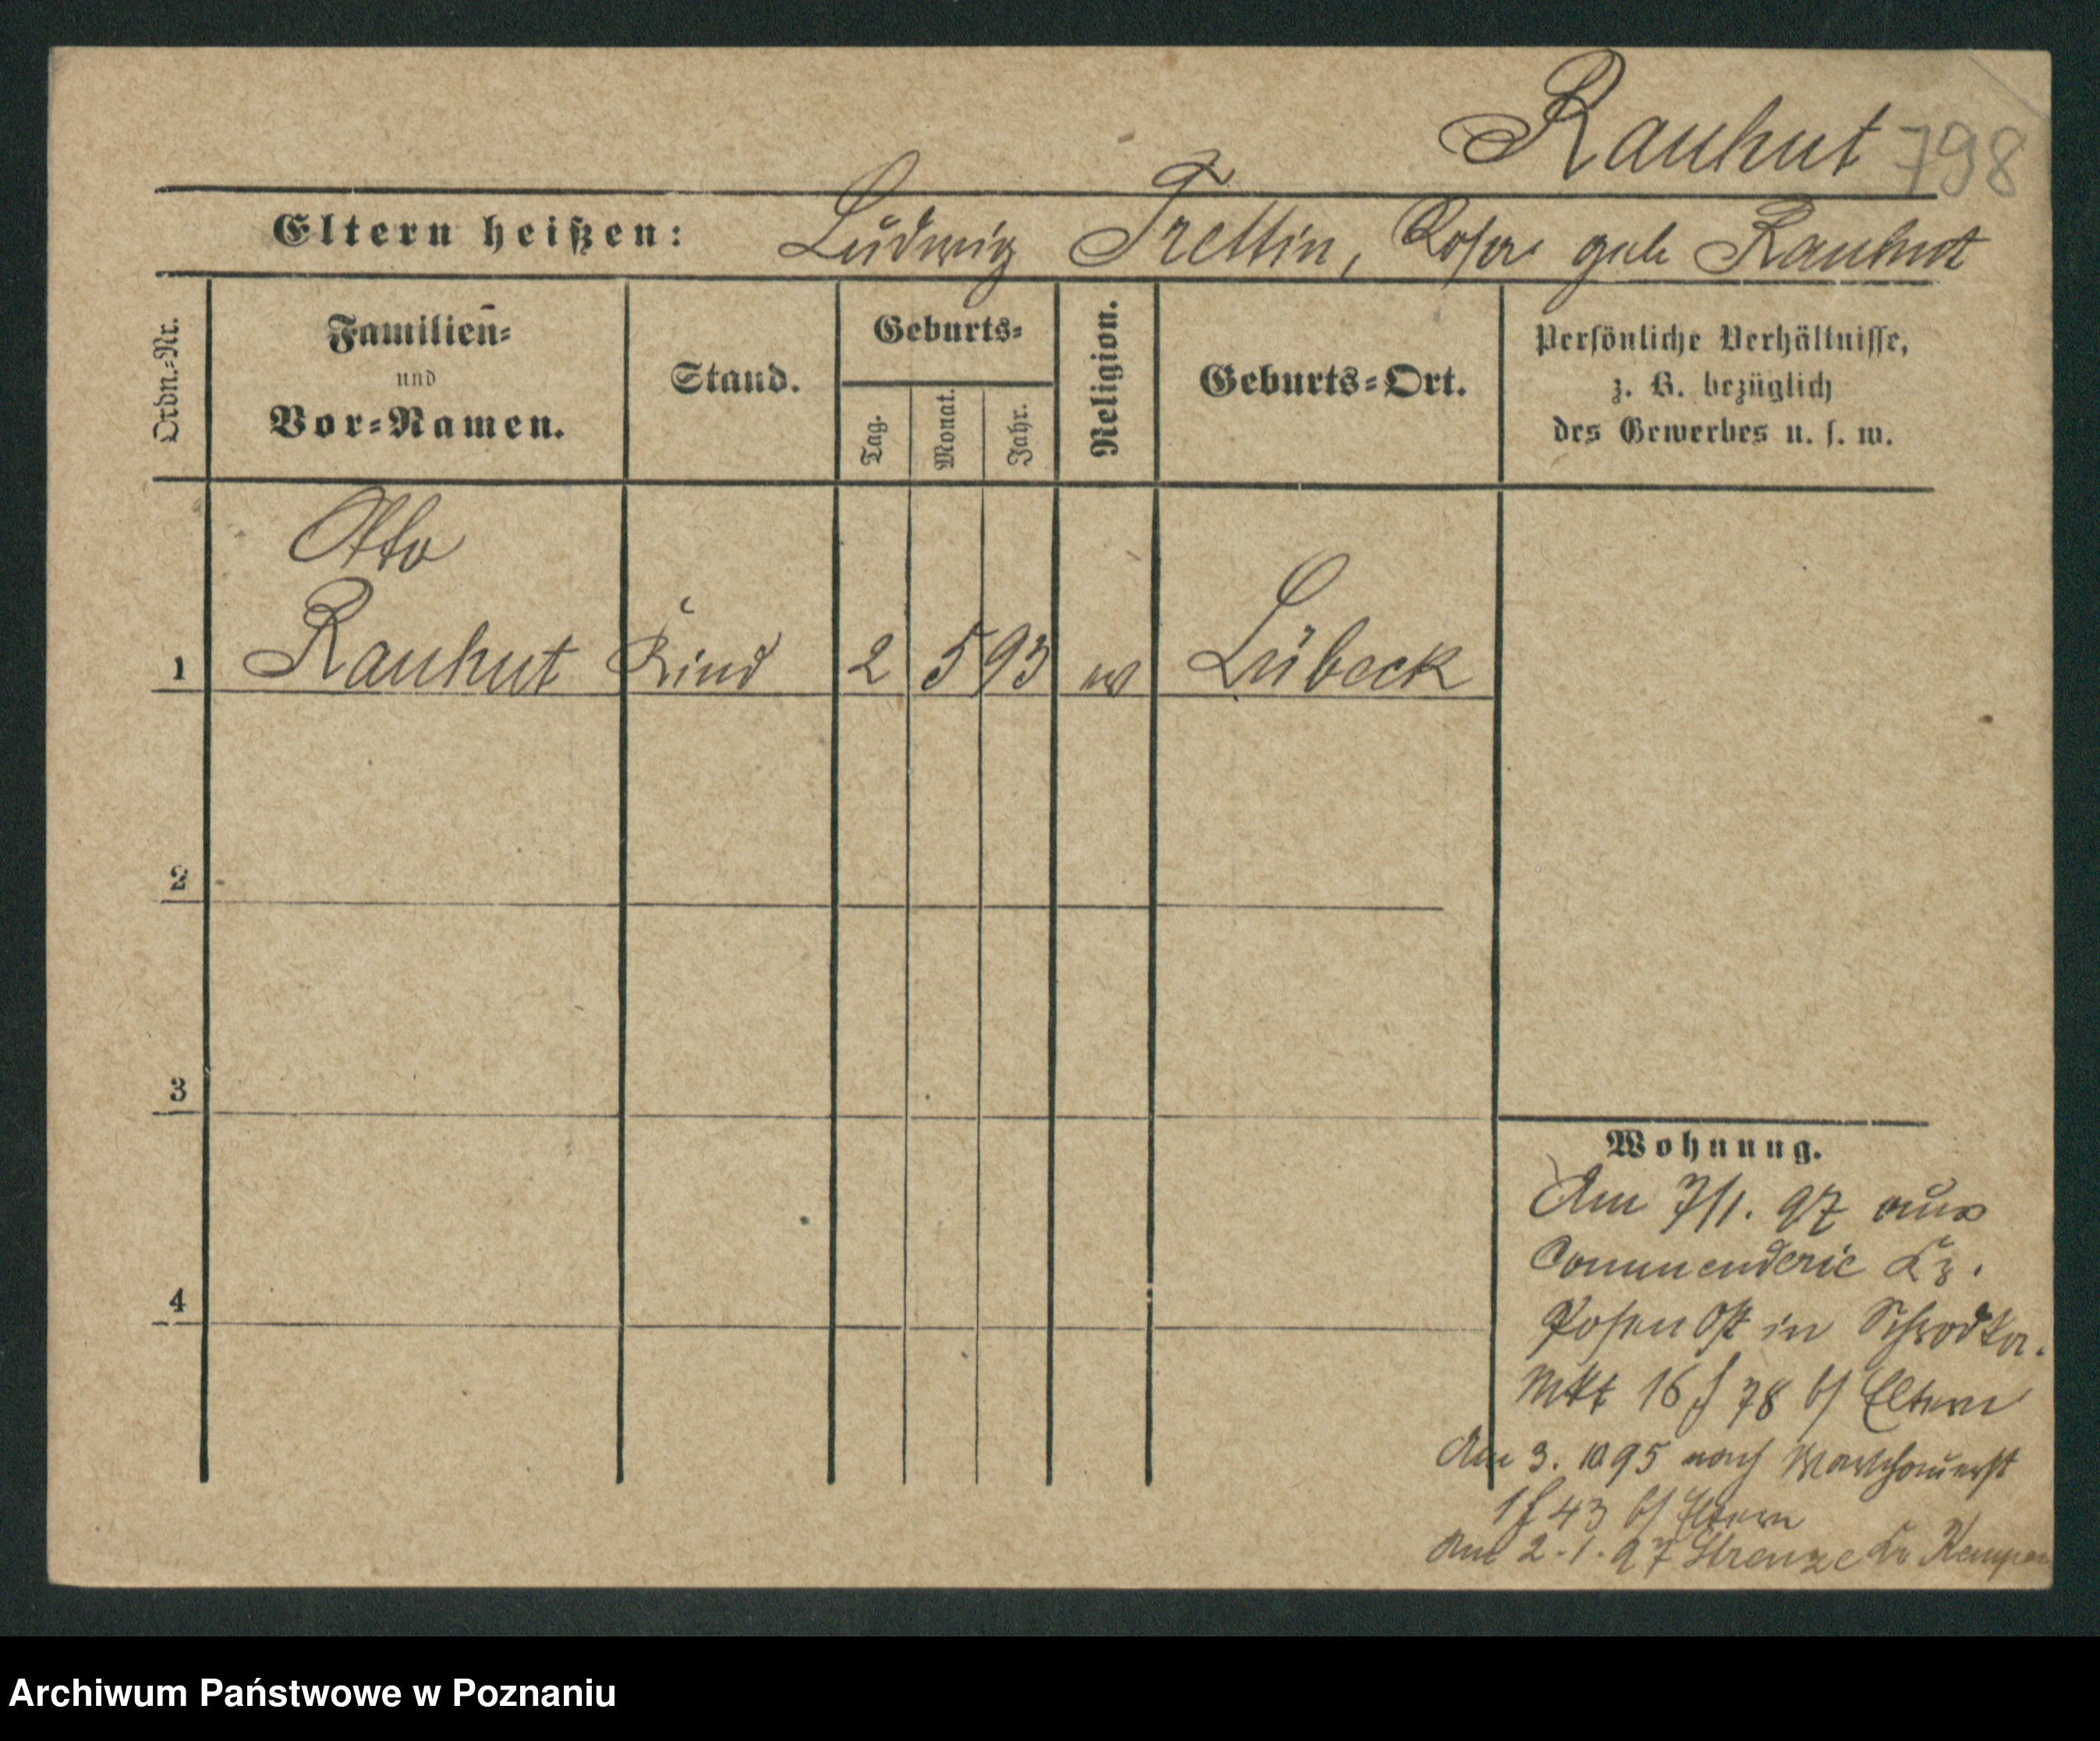 Rauhut 798
Eltern heißen: Ludwig Trettin, Rosa geb Rauhut
Ordn.-Nr.
Familien-
und
Vor-Namen.
Stand.
Geburts-
Tag.
Monat.
Jahr.
Religion.
Geburts-Ort.
Persönliche Verhältnisse,
z. B. bezüglich
des Gewerbes u. s. w.
Otto
1 Rauhut Kind 2 5 93 Lübeck
2
3
4
Wohnung.
Am 7/1. 97 aus
Commenderie Kr.
Posen Ost in Schrodka.
Mkt 16 f 78 b/ Eltern
Am 3. 10 95 nach Warschauerst
1 f 43 b/ Eltern
Am 2.1.97 Strenze Kr Kempen
Archiwum Państwowe w Poznaniu